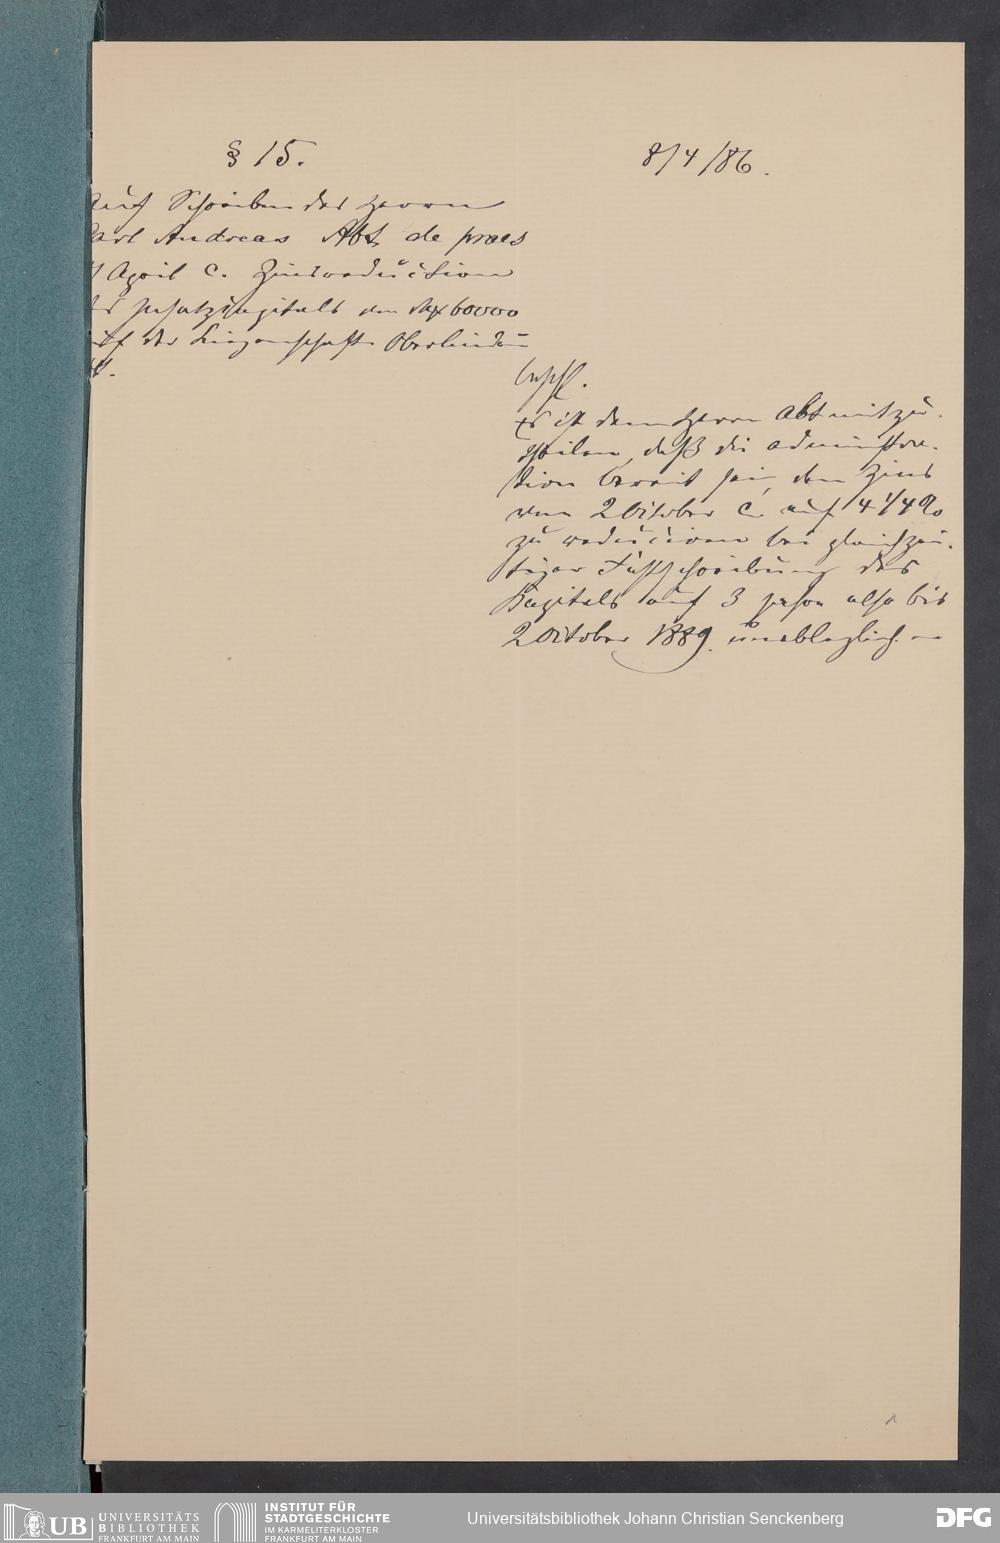 § 15.
8/4/86.
Auf Schreiben des Herrn
Carl Andreas Abt de praes
April c. Zinsreduction
des Insatzkapitals von Mk 60000
auf der Liegenschaft Oberlindau
Beschl.
Es ist dem Herrn Abt mitzu-
theilen, daß die Administra-
tion bereit sei, den Zins
vom 2 October c. auf 4 1/4 %
zu reduciren bei gleichzei-
tiger Festschreibung des
Kapitals auf 3 Jahre also bis
2 October 1889. unablöslich
1
UB UNIVERSITÄTS
BIBLIOTHEK
FRANKFURT AM MAIN
INSTITUT FÜR
STADTGESCHICHTE
IM KARMELITERKLOSTER
FRANKFURT AM MAIN
Universitätsbibliothek Johann Christian Senckenberg
DFG